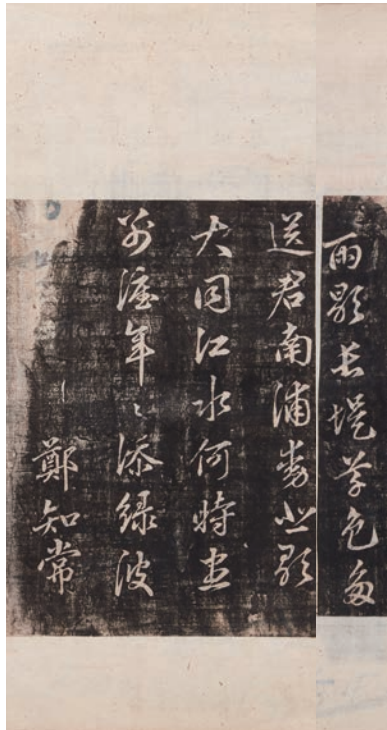 雨歇長堤草色多
送君南浦動悲歌
大同江水何時盡
別淚年〻添綠波
鄭知常